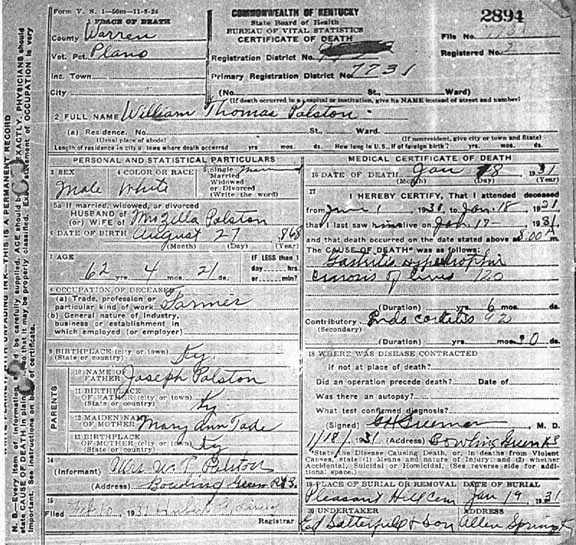 Form V. S. 1-50m-11-5-26
1 PLACE OF DEATH
County Warren
Vot. Pct. Plano
Inc. Town
City
COMMONWEALTH OF KENTUCKY
State Board of Health
BUREAU OF VITAL STATISTICS
CERTIFICATE OF DEATH
Registration District No.
Primary Registration District No. 7731
2894
File No.
Registered No. 2
(No. St., Ward)
(If death occurred in a hospital or institution, give its NAME instead of street and number)
2 FULL NAME William Thomas Palston
(a) Residence. No. St., Ward.
(Usual place of abode) (If nonresident, give city or town and State)
Length of residence in city or town where death occurred yrs. mos. ds. How long in U. S., if of foreign birth? yrs. mos. ds.
PERSONAL AND STATISTICAL PARTICULARS
3 SEX
Male
4 COLOR OR RACE
White
5 Single
Married
Widowed
or Divorced
(Write the word)
5a If married, widowed, or divorced
HUSBAND of
(or) WIFE of Mozella Palston
6 DATE OF BIRTH August 27 1868
(Month) (Day) (Year)
7 AGE
62 yrs. 4 mos. 21 ds.
IF LESS than 1
day hrs.
or min?
8 OCCUPATION OF DECEASED
(a) Trade, profession or
particular kind of work Farmer
(b) General nature of industry,
business or establishment in
which employed (or employer)
9 BIRTHPLACE (city or town) Ky.
(State or country)
PARENTS
10 NAME OF
FATHER Joseph Palston
11 BIRTHPLACE
OF FATHER (city or town)
(State or country) Ky
12 MAIDEN NAME
OF MOTHER Mary Ann Tade
13 BIRTHPLACE
OF MOTHER (city or town)
(State or country) Ky
14
(Informant) Mrs. W. T. Palston
(Address) Bowling Green R 3
15
Filed 1931
Registrar
MEDICAL CERTIFICATE OF DEATH
16 DATE OF DEATH Jan 18 1931
(Month) (Day) (Year)
17
I HEREBY CERTIFY, That I attended deceased
from June 1 1930, to Jan 18 - 1931
that I last saw him alive on Jan 17 - 1931
and that death occurred on the date stated above at 8:00 m.
The CAUSE OF DEATH* was as follows:
Gastritis
120
(Duration) yrs. 6 mos. ds.
Contributory Endocarditis 92
(Secondary)
(Duration) yrs. mos. ds.
18 WHERE WAS DISEASE CONTRACTED
if not at place of death?
Did an operation precede death? Date of
Was there an autopsy?
What test confirmed diagnosis?
(Signed) M. D.
1/18/1931 (Address) Bowling Green
*State the Disease Causing Death, or, in deaths from Violent
Causes, state (1) Means and nature of Injury; and (2) whether
Accidental, Suicidal or Homicidal. (See reverse side for addi-
tional space.)
19 PLACE OF BURIAL OR REMOVAL DATE OF BURIAL
Pleasant Hill Cem Jan 19 1931
20 UNDERTAKER ADDRESS
Ed Satterfield & Son Allen Springs